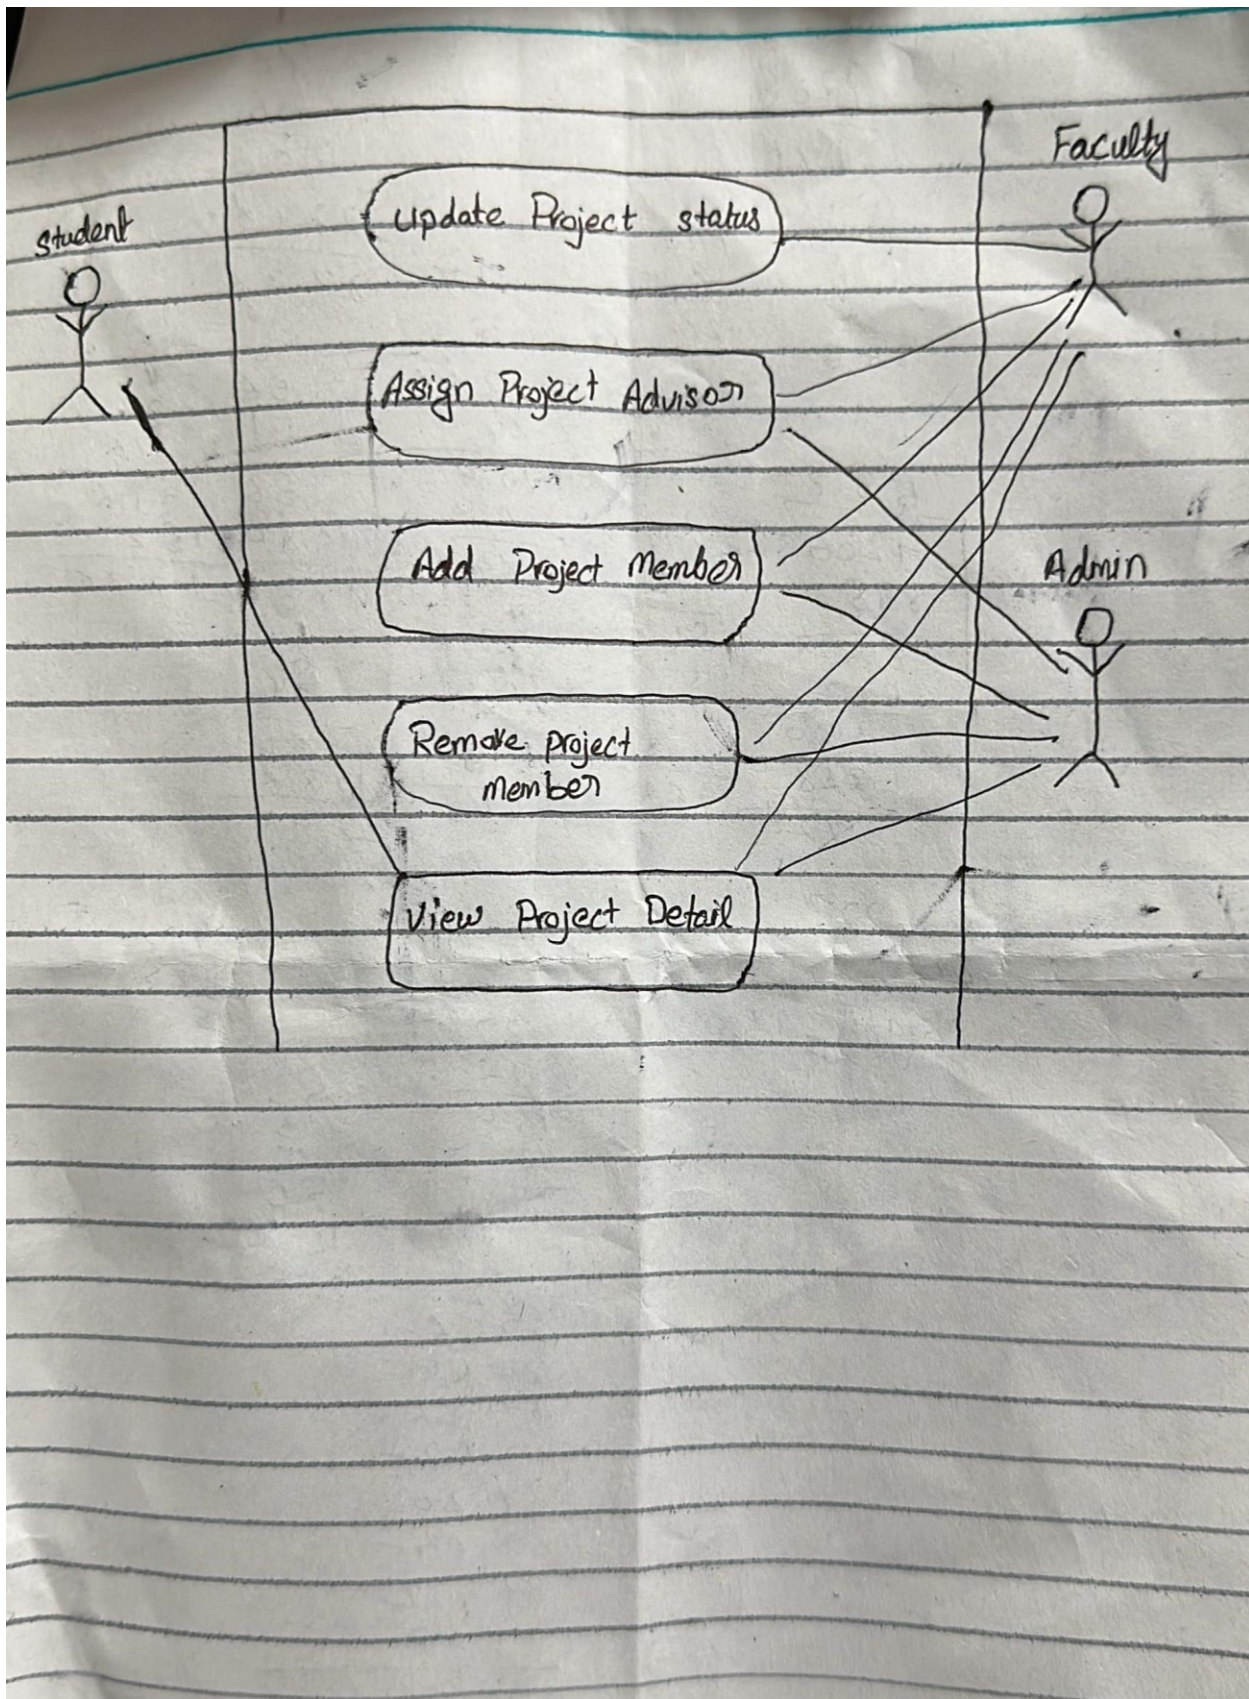 Faculty
Student
Update Project status
Assign Project Advisor
Add Project Member
Admin
Remove project
member
View Project Detail